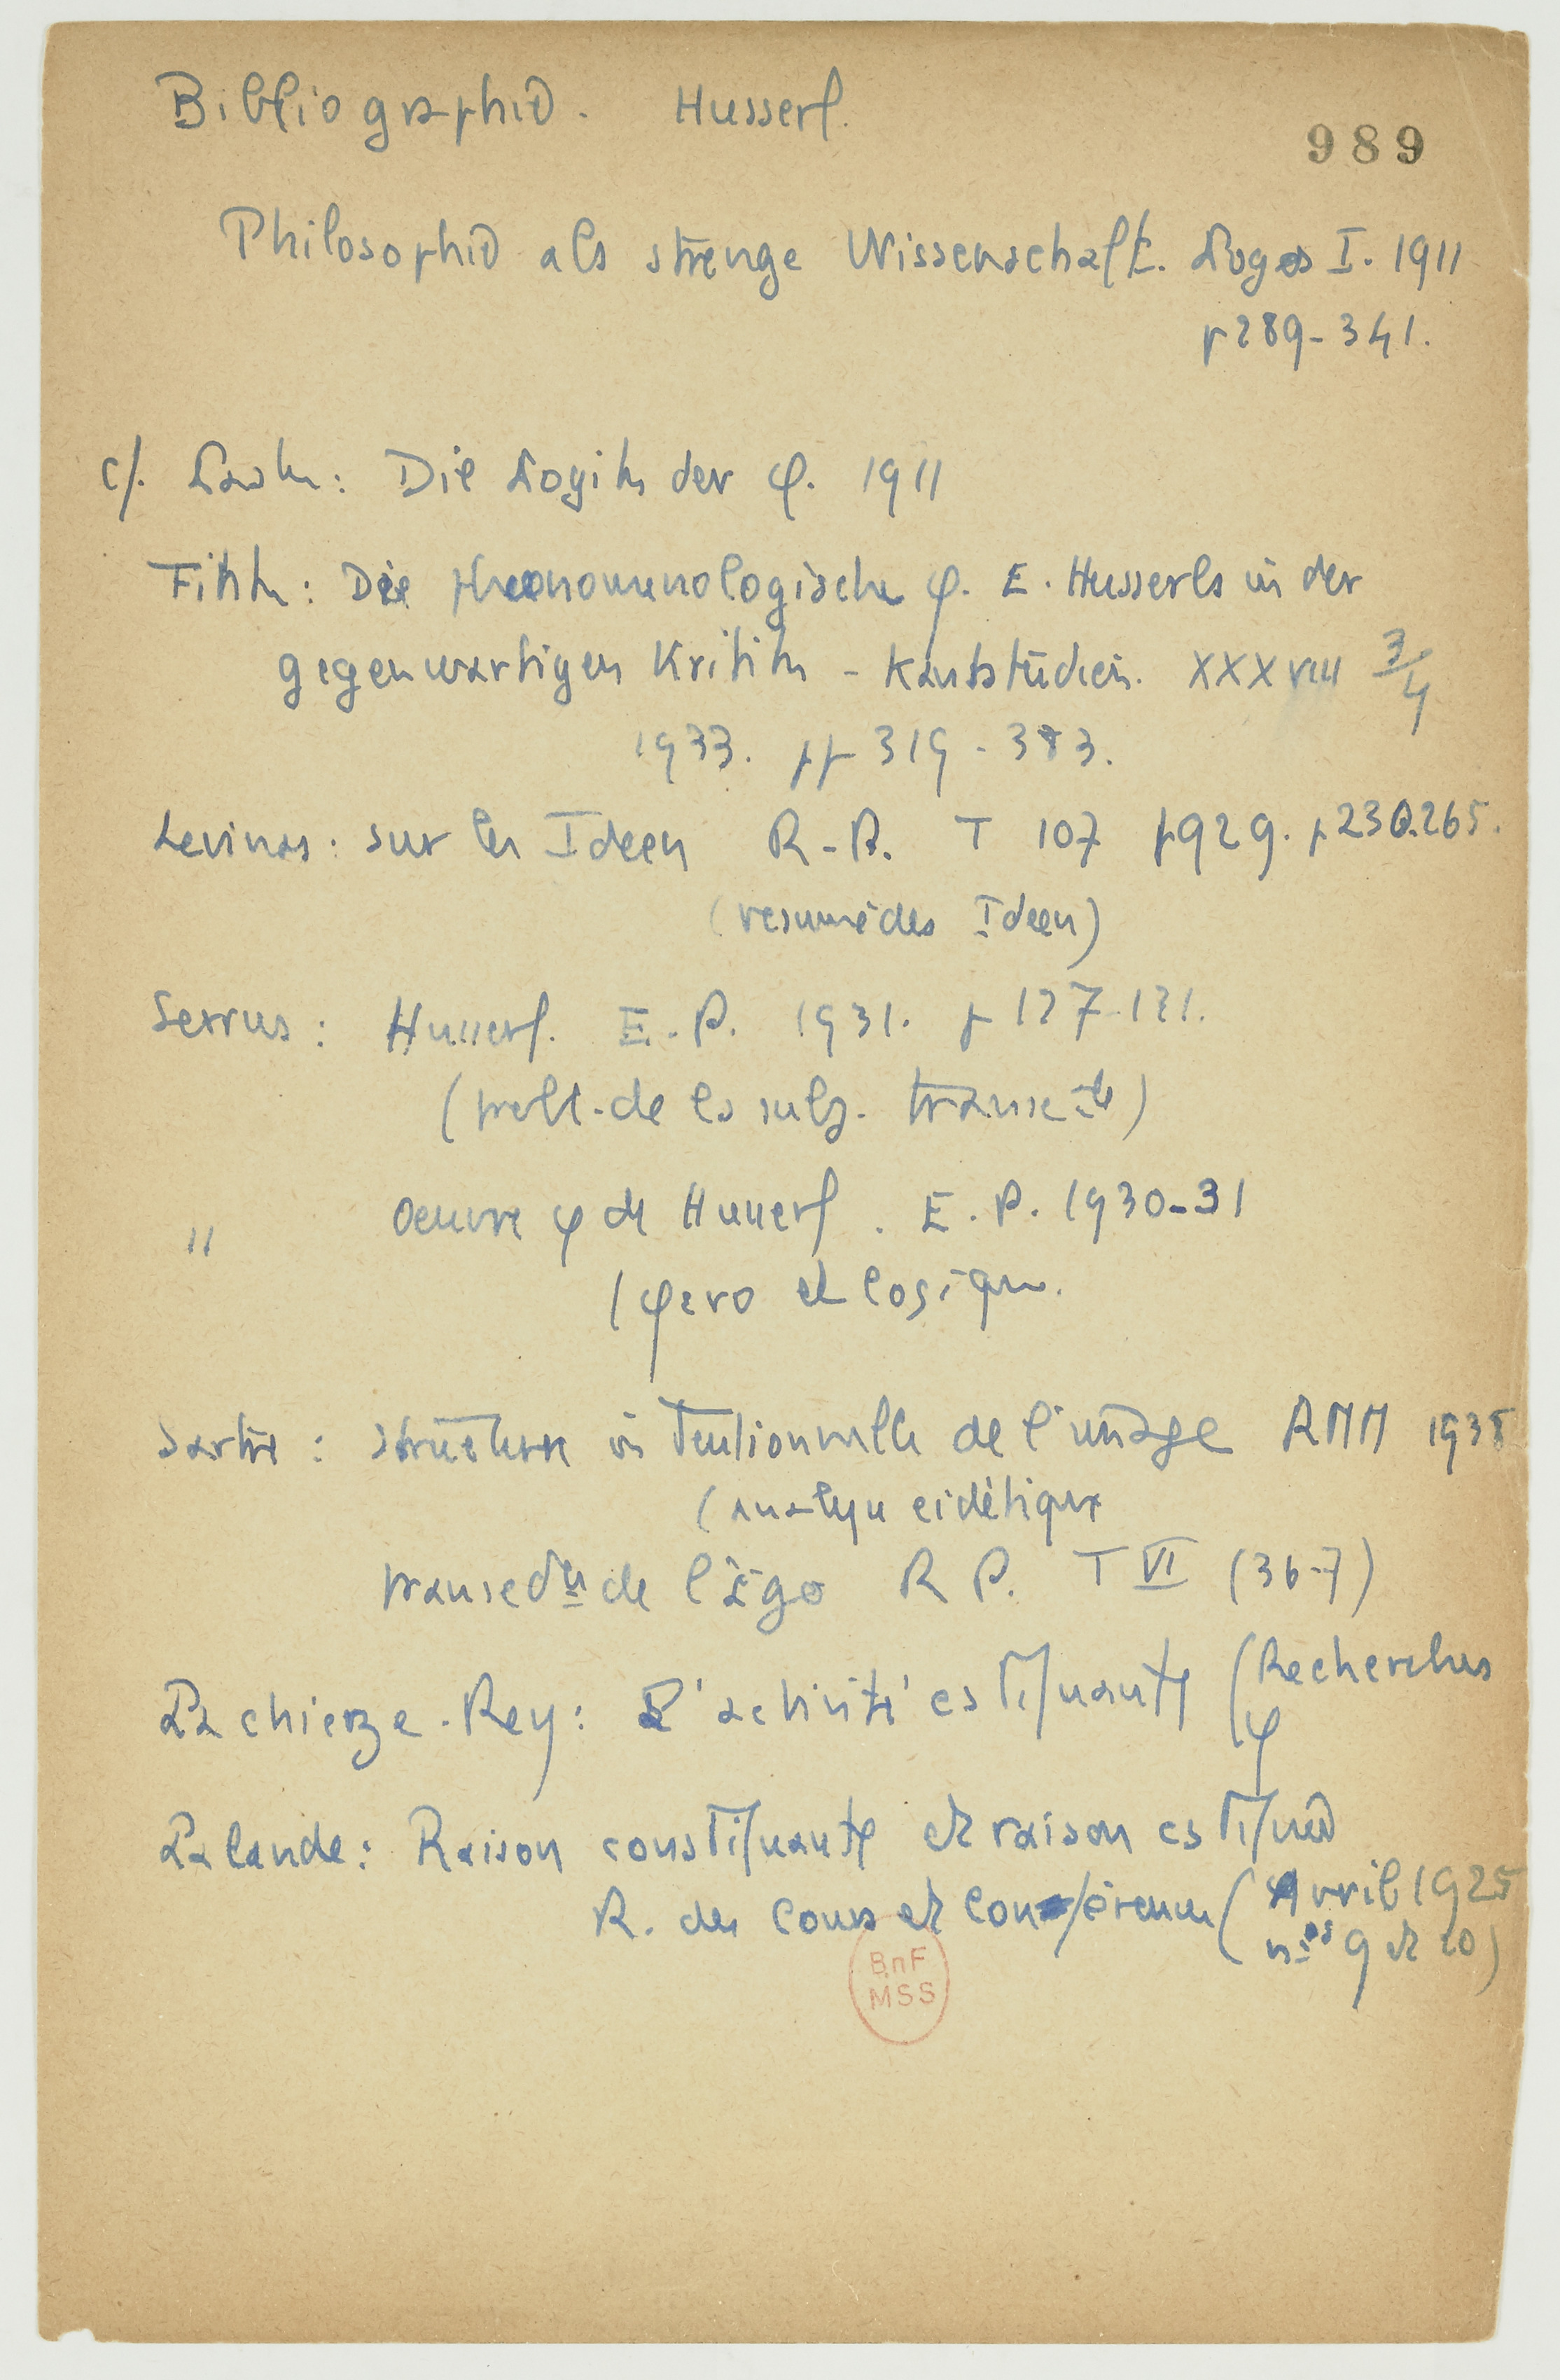 Bibliographie. Husserl.
989
Philosophie als strenge Wissenschaft. Logos I. 1911
p 289-341.
cf. Lask : Die Logik der φ. 1911
Fink : Die phenomenologische φ. E. Husserls in der
gegenwartigen Kritik - Kantstudien. XXXVIII 3/4
1933. pp 319-383.
Levinas : sur les Ideen R.P. T 107 1929. p 230.265.
(resumé des Ideen)
Serrus : Husserl. E.P. 1931. p 127.131.
(probl. de la subj. transc le)
" Oeuvre φ de Husserl. E.P. 1930-31
(φeno et logique.
Sartre : structure intentionnelle de l'image RMM 1938
(analyse eidétique
transcdce de l'Ego R P. T VI (36-7)
Lachieze-Rey : L'activité cstituante (Recherches
φ
Lalande : Raison constituante et raison cstituée
R. des Cours et Conférences (Avril 1925
nos 9 et 10)
BnF
MSS